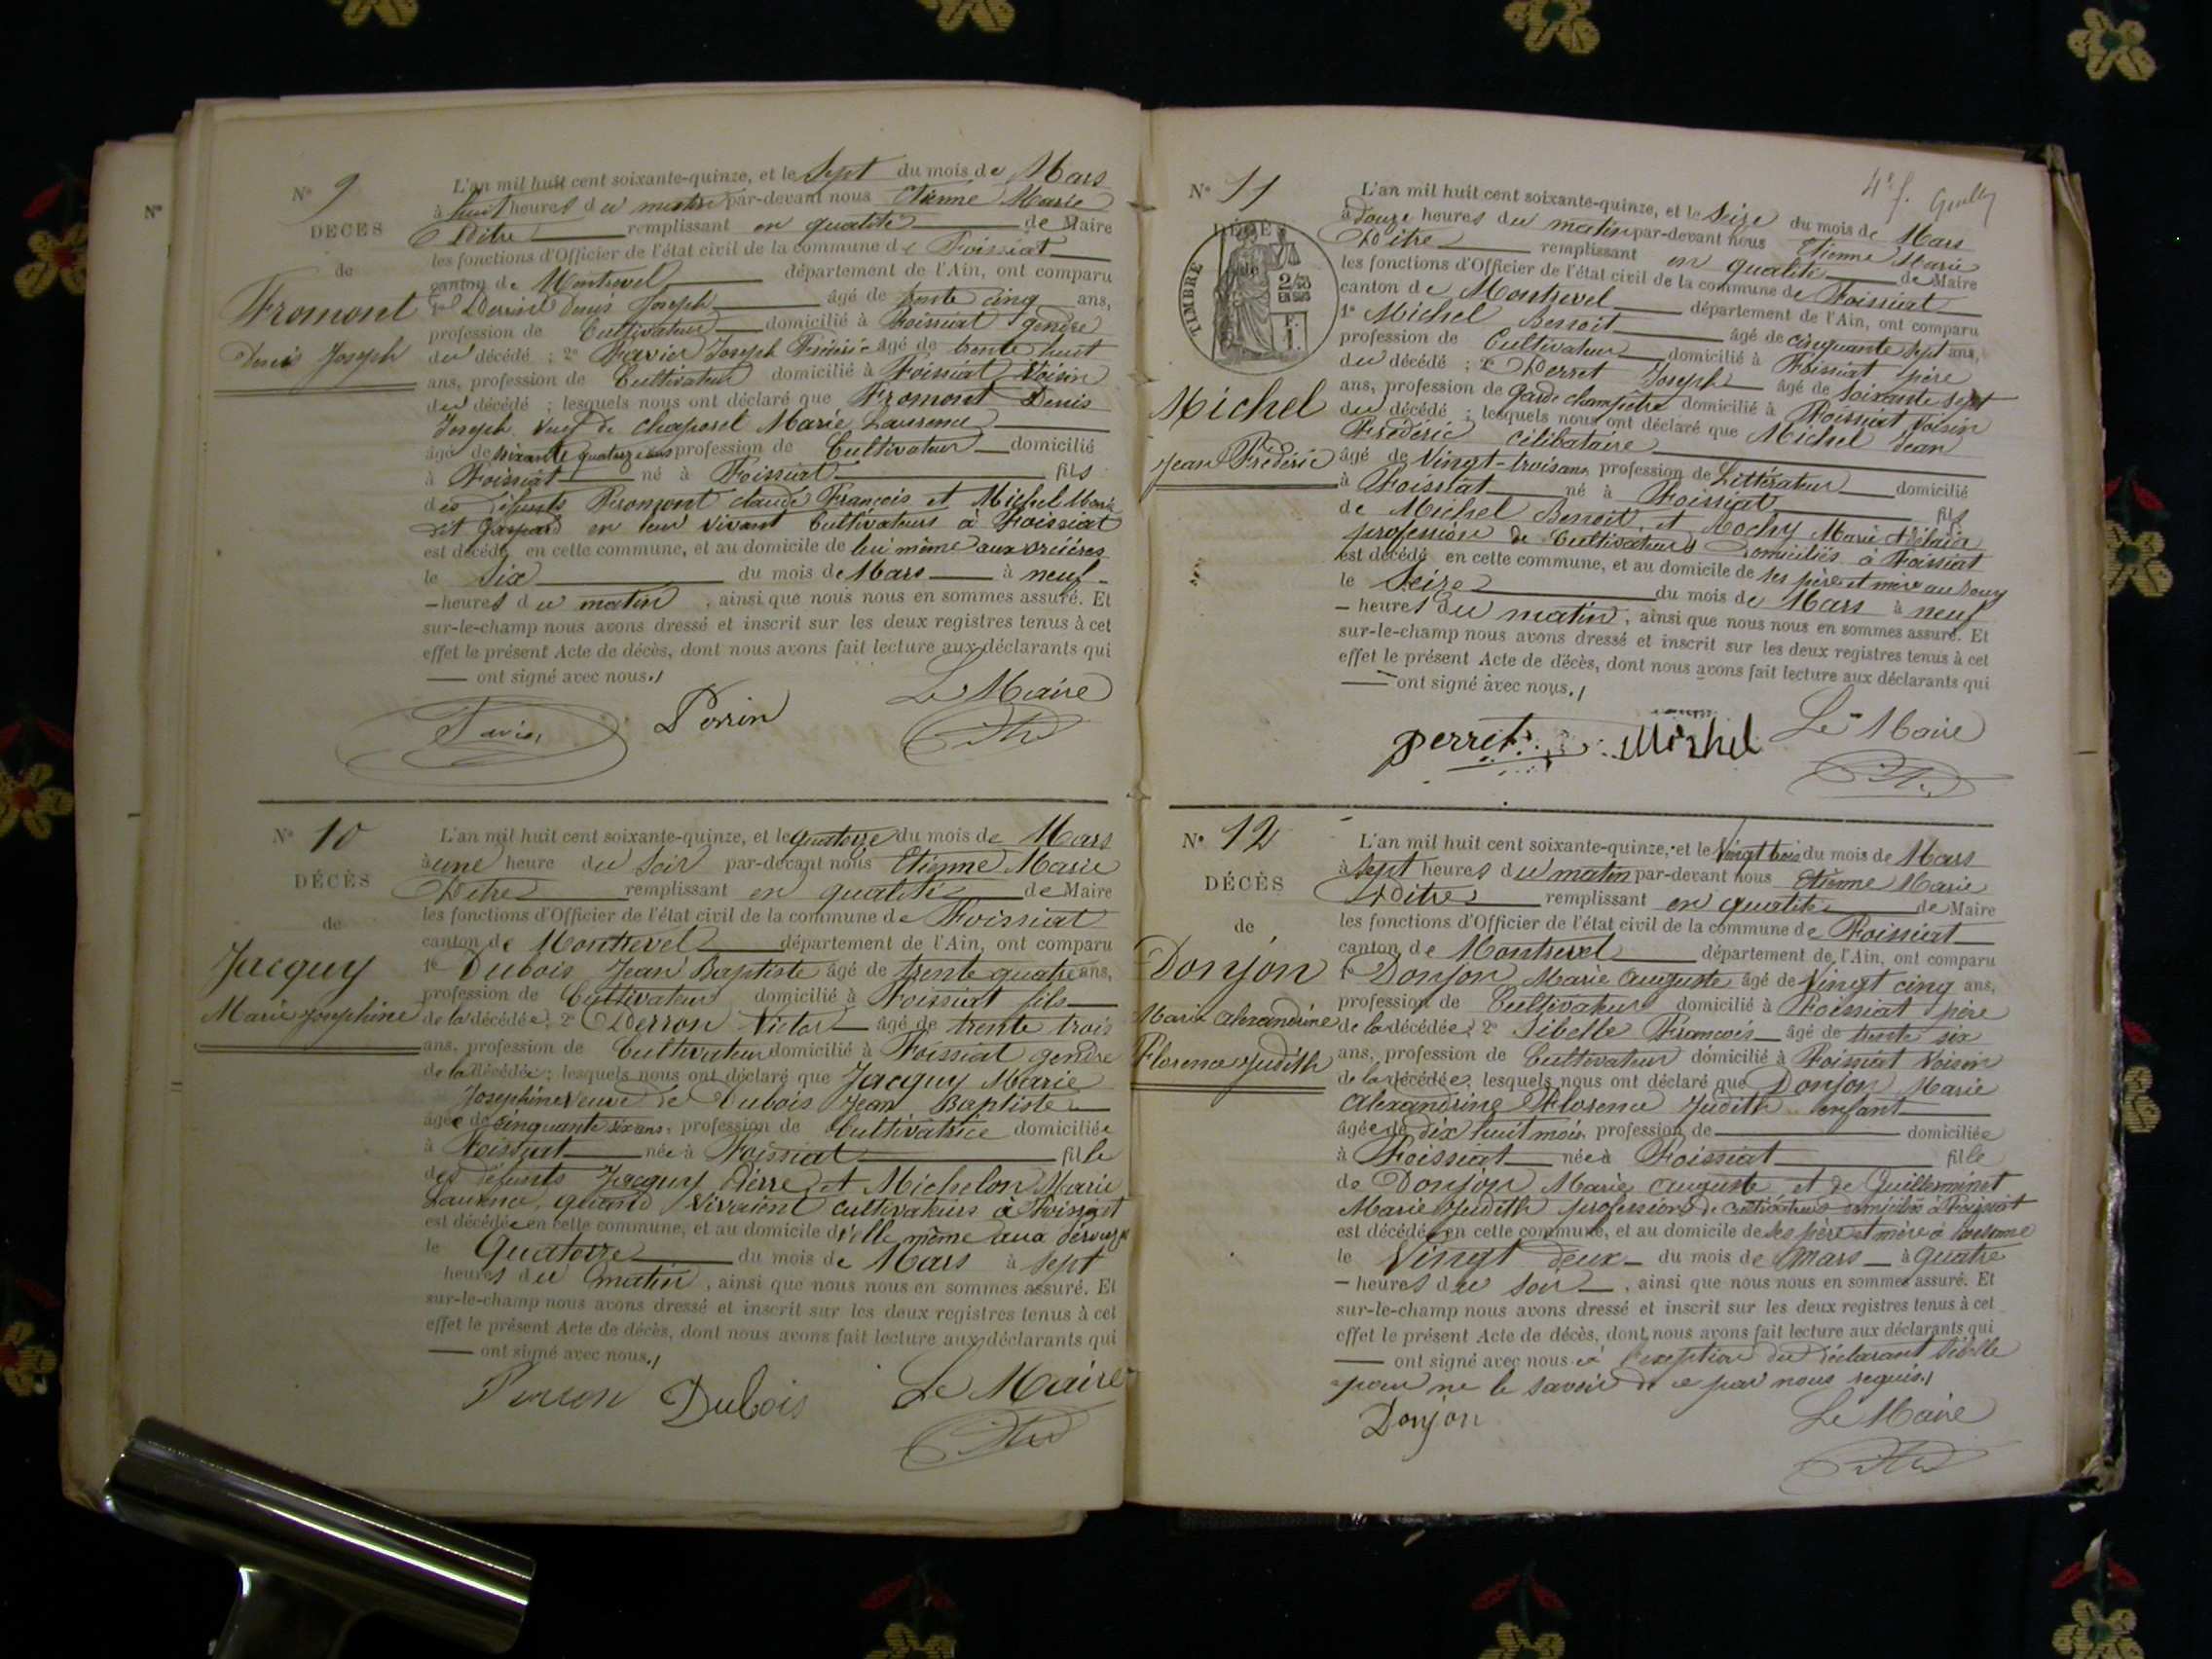 N° 9
DÉCÈS
de
Fromont
Denis Joseph
L'an mil huit cent soixante-quinze, et le Sept du mois de Mars
à huit heures du matin par-devant nous Etienne Marie
remplissant en qualité de Maire
les fonctions d'Officier de l'état civil de la commune de Foissiat
canton de Montrevel département de l'Ain, ont comparu
Denis Joseph âgé de trente cinq ans,
profession de Cultivateur domicilié à Foissiat gendre
du décédé ; 2° Favier Joseph Frédéric âgé de trente huit
ans, profession de Cultivateur domicilié à Foissiat Voisin
du décédé ; lesquels nous ont déclaré que Fromont Denis
Joseph veuf de Chaponel Marie Laurence
âgé de soixante quatorze ans profession de Cultivateur domicilié
à Foissiat né à Foissiat fils
des défunts Fromont Claude François et Michel Marie
dit Gaspard en leur vivant Cultivateurs à Foissiat
est décédé en cette commune, et au domicile de lui même aux
le Six du mois de Mars à neuf
heures du matin, ainsi que nous nous en sommes assuré. Et
sur-le-champ nous avons dressé et inscrit sur les deux registres tenus à cet
effet le présent Acte de décès, dont nous avons fait lecture aux déclarants qui
ont signé avec nous./
Favier Perrin Le Maire
N° 10
DÉCÈS
de
Jacquy
Marie Joséphine
L'an mil huit cent soixante-quinze, et le quatorze du mois de Mars
à une heure du Soir par-devant nous Etienne Marie
remplissant en qualité de Maire
les fonctions d'Officier de l'état civil de la commune de Foissiat
canton de Montrevel département de l'Ain, ont comparu
1° Dubois Jean Baptiste âgé de trente quatre ans,
profession de Cultivateur domicilié à Foissiat fils
de la décédée, 2° Perron Victor âgé de trente trois
ans, profession de Cultivateur domicilié à Foissiat gendre
de la décédée ; lesquels nous ont déclaré que Jacquy Marie
Joséphine veuve de Dubois Jean Baptiste
âgée de cinquante six ans, profession de Cultivatrice domiciliée
à Foissiat née à Foissiat fille
des défunts Jacquy Pierre et Michelon Marie
Laurence, quand vivaient cultivateurs à Foissiat
est décédée en cette commune, et au domicile d'elle même aux
le Quatorze du mois de Mars à sept
heures du matin, ainsi que nous nous en sommes assuré. Et
sur-le-champ nous avons dressé et inscrit sur les deux registres tenus à cet
effet le présent Acte de décès, dont nous avons fait lecture aux déclarants qui
ont signé avec nous./
Perron Dubois Le Maire
4e f.
N° 11
TIMBRE
Michel
Jean Frédéric
L'an mil huit cent soixante-quinze, et le Seize du mois de Mars
à douze heures du matin par-devant nous Etienne Marie
remplissant en qualité de Maire
les fonctions d'Officier de l'état civil de la commune de Foissiat
canton de Montrevel département de l'Ain, ont comparu
1° Michel Benoit âgé de cinquante sept ans,
profession de Cultivateur domicilié à Foissiat père
du décédé ; 2° Perret Joseph âgé de soixante sept
ans, profession de garde champêtre domicilié à Foissiat Voisin
du décédé ; lesquels nous ont déclaré que Michel Jean
Frédéric célibataire
âgé de Vingt-trois ans profession de Littérateur domicilié
à Foissiat né à Foissiat fils
de Michel Benoit et Rochy Marie Adélaïde
profession de Cultivateurs domiciliés à Foissiat
est décédé en cette commune, et au domicile de ses père et mère au
le Seize du mois de Mars à neuf
heures du matin, ainsi que nous nous en sommes assuré. Et
sur-le-champ nous avons dressé et inscrit sur les deux registres tenus à cet
effet le présent Acte de décès, dont nous avons fait lecture aux déclarants qui
ont signé avec nous./
perret Michel Le Maire
N° 12
DÉCÈS
de
Donjon
Marie Alexandrine
Florence Judith
L'an mil huit cent soixante-quinze, et le Vingt trois du mois de Mars
à Sept heures du matin par-devant nous Etienne Marie
remplissant en qualité de Maire
les fonctions d'Officier de l'état civil de la commune de Foissiat
canton de Montrevel département de l'Ain, ont comparu
1° Donjon Marie Auguste âgé de Vingt cinq ans,
profession de Cultivateur domicilié à Foissiat père
de la décédée ; 2° Sibelle François âgé de trente six
ans, profession de Cultivateur domicilié à Foissiat Voisin
de la décédée, lesquels nous ont déclaré que Donjon Marie
Alexandrine Florence Judith enfant
âgée de dix huit mois profession de domiciliée
à Foissiat née à Foissiat fille
de Donjon Marie Auguste et de Guillerminet
Marie Judith profession de cultivateurs domiciliés à Foissiat
est décédée en cette commune, et au domicile de ses père et mère à
le Vingt deux du mois de Mars à quatre
heures du soir, ainsi que nous nous en sommes assuré. Et
sur-le-champ nous avons dressé et inscrit sur les deux registres tenus à cet
effet le présent Acte de décès, dont nous avons fait lecture aux déclarants qui
ont signé avec nous à l'exception du déclarant Sibelle
pour ne le savoir de ce par nous requis./
Donjon Le Maire